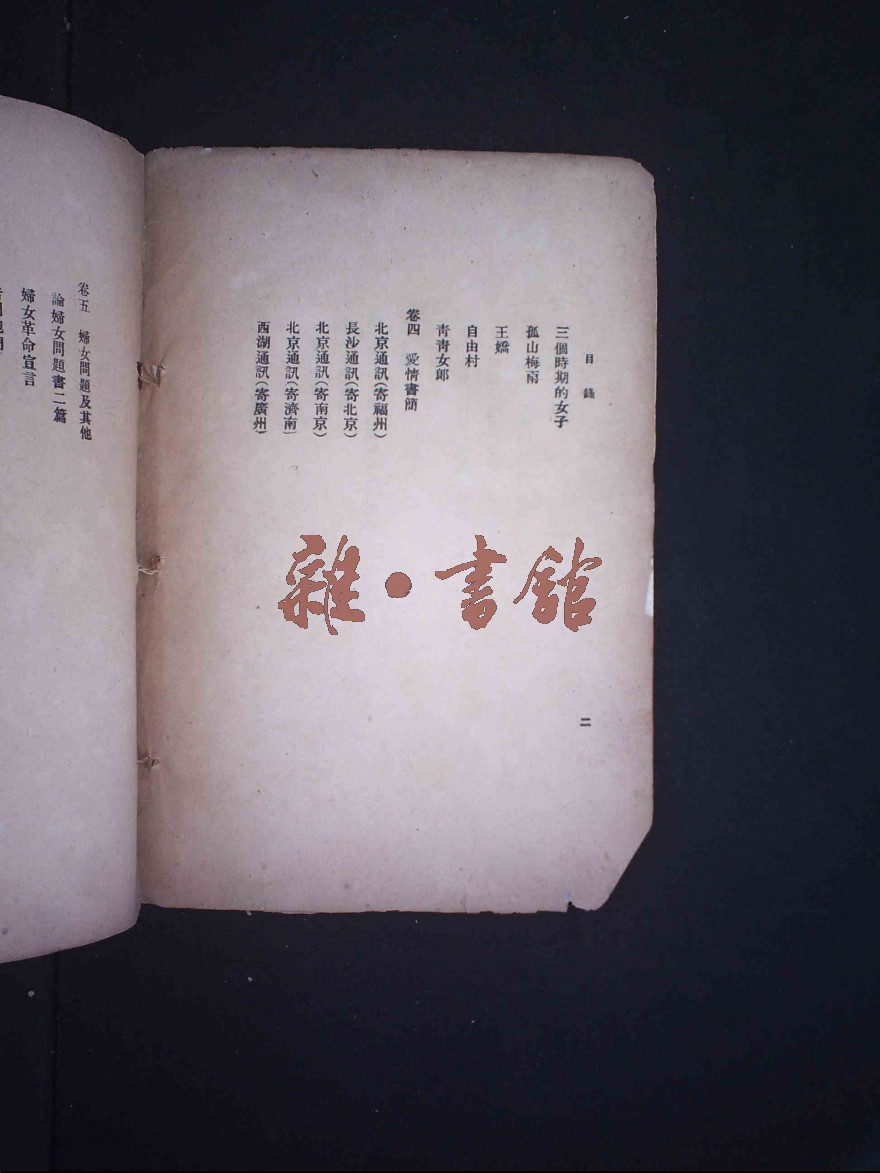 目錄
三個時期的女子
孤山梅雨
王嬌
自由村
青青女郎
卷四 愛情書簡
北京通訊(寄福州)
長沙通訊(寄北京)
北京通訊(寄南京)
北京通訊(寄濟南)
西湖通訊(寄廣州)
二
雜•書館
卷五 婦女問題及其他
論婦女問題書二篇
婦女革命宣言